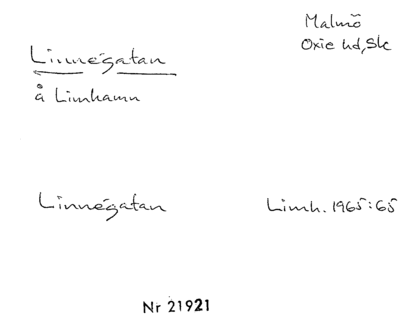 Malmö
Oxie hd, Sk
Linnégatan
å Limhamn
Linnégatan Limh. 1965:65
Nr 21921